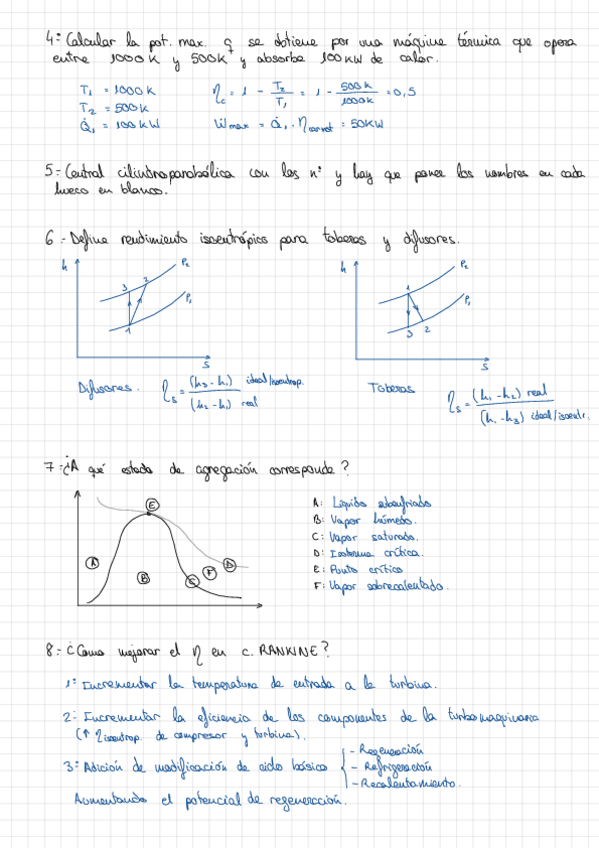 4: Calcular la pot. max. q se obtiene por una máquina térmica que opera
entre 1000 K y 500K y absorbe 100 KW de calor.
T₁ = 1000K
T₂ = 500K
Q̇₁ = 100 KW
η_c = 1 - T₂/T₁ = 1 - 500K/1000K = 0,5
Ẇmax = Q̇₁ · ηcarnot = 50KW
5: Central cilindroparabólica con los nº y hay que poner los nombres en cada
hueco en blanco.
6.- Define rendimiento isoentrópico para toberas y difusores.
h
3 2 P₂
P₁
1
s
h
1 P₂
P₁
3 2
s
Difusores. η_s = (h₃-h₁) ideal/isoentrop. / (h₂-h₁) real
Toberas η_s = (h₁-h₂) real / (h₁-h₃) ideal/isoentr.
7: ¿A qué estado de agregación corresponde?
E
A
B
C
F
D
A: Líquido subenfriado
B: Vapor húmedo.
C: Vapor saturado.
D: Isoterma crítica.
E: Punto crítico
F: Vapor sobrecalentado.
8: ¿Cómo mejorar el η en c. RANKINE?
1: Incrementar la temperatura de entrada a la turbina.
2: Incrementar la eficiencia de los componentes de la turbomaquinaria
(↑ ηisoentrop. de compresor y turbina).
3: Adición de modificación de ciclo básico
- Regeneración
- Refrigeración
- Recalentamiento.
Aumentando el potencial de regeneracción.